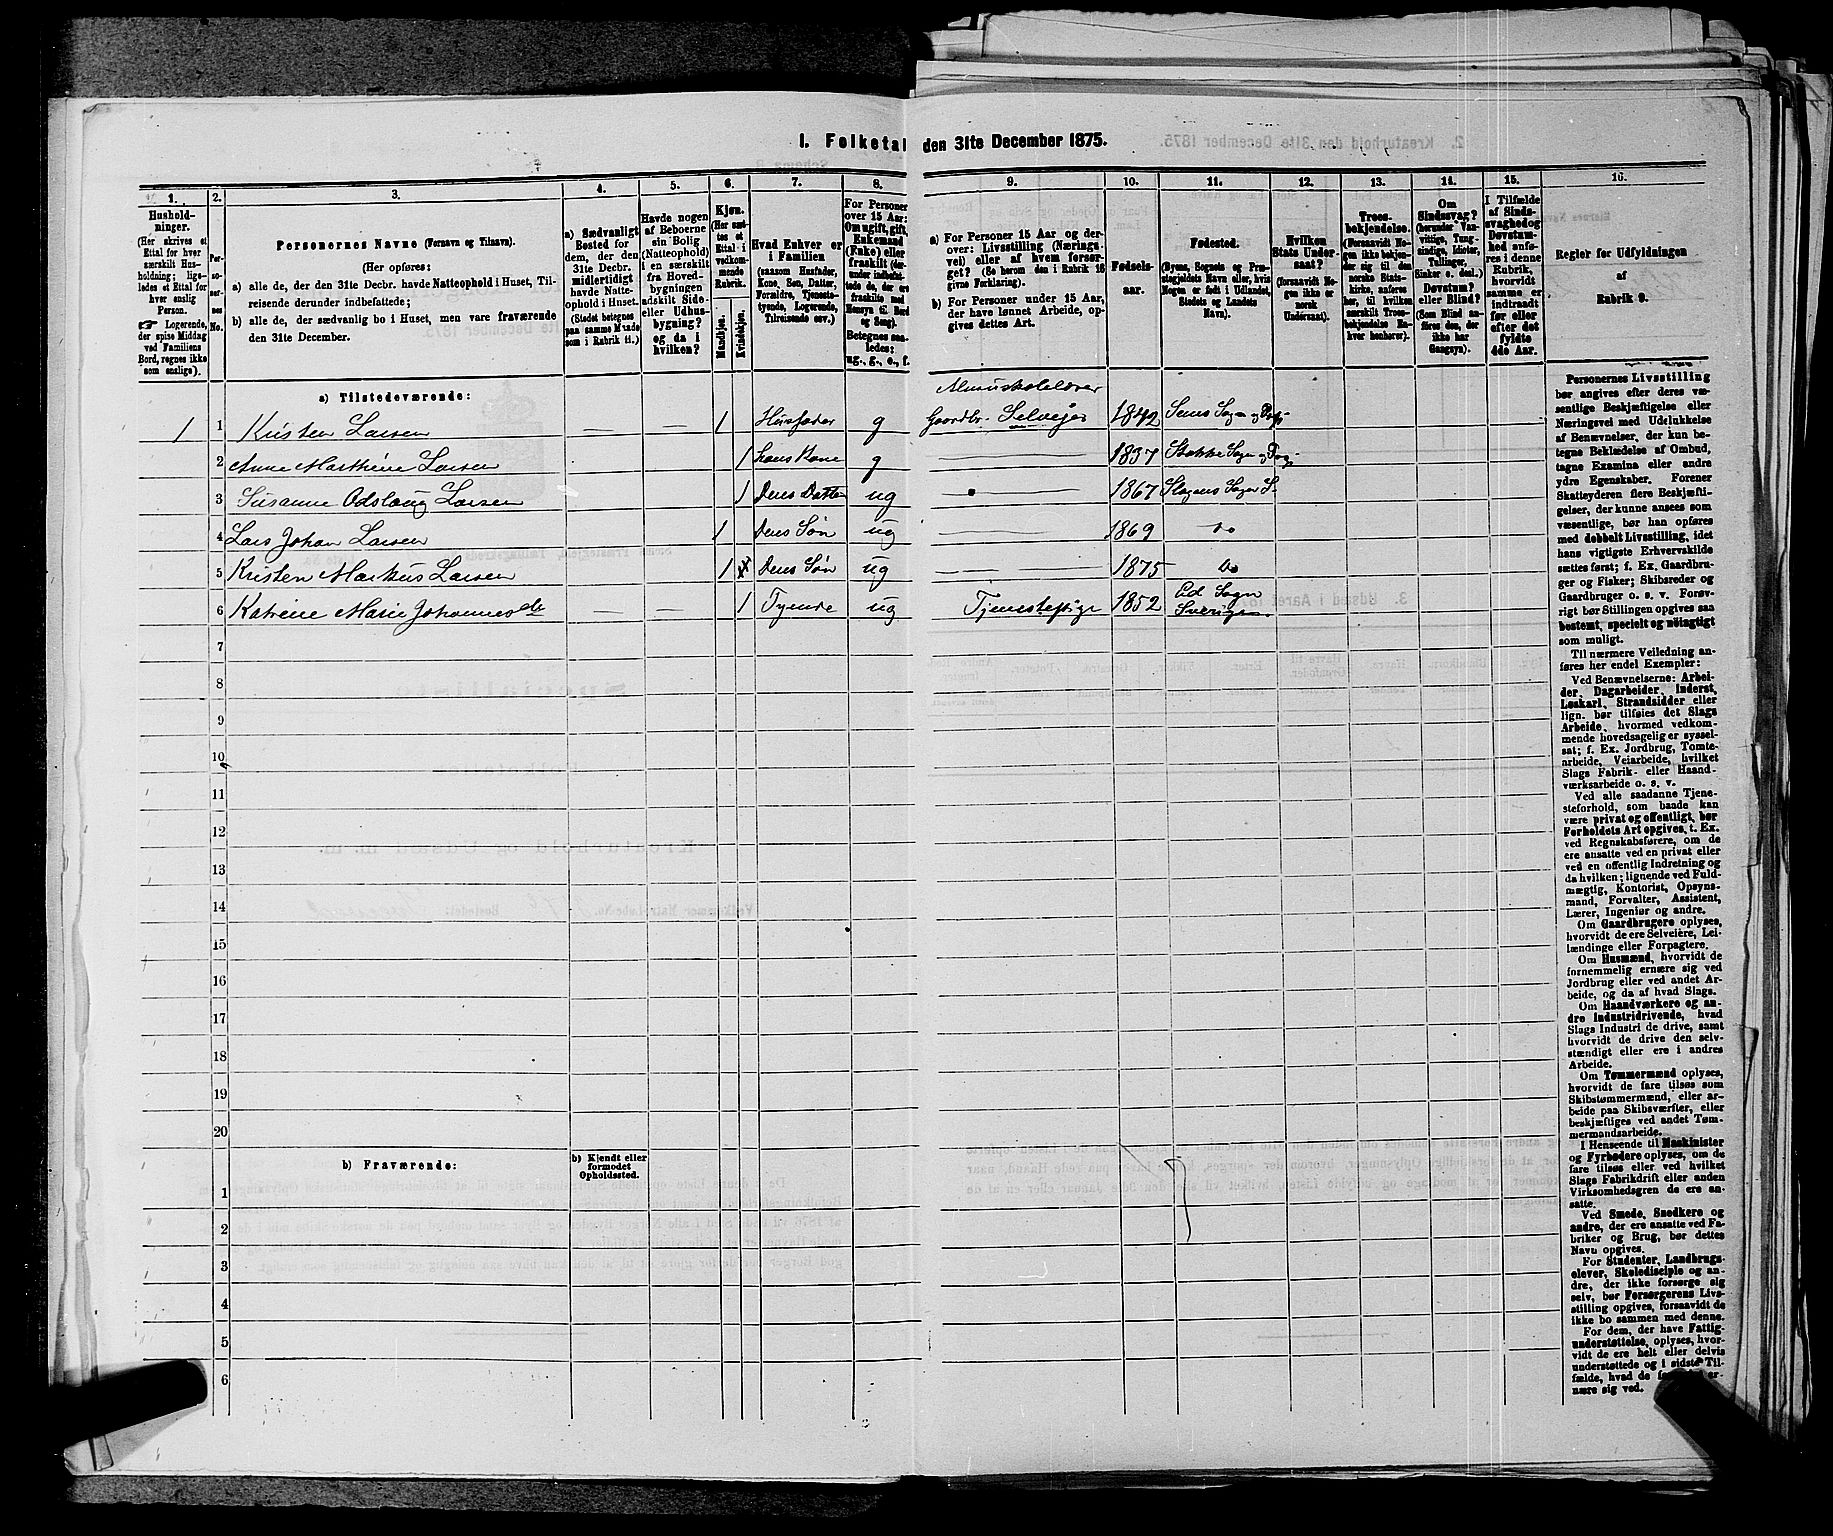 1. Folketal den 31te December 1875.
1. 2. 3. 4. 5. 6. 7. 8. 9. 10. 11. 12. 13. 14. 15. 16.
Hushold-
ninger.
(Her skrives et
Ettal for hver
særskilt Hus-
holdning; lige-
ledes et Ettal for
hver enslig
Person.
☞ Logerende,
der spise Middag
ved Familiens
Bord, regnes ikke
som enslige).
Per-
so-
ner-
nes
No.
Personernes Navne (Fornavn og Tilnavn).
(Her opføres:
a) alle de, der den 31te Decbr. havde Natteophold i Huset, Til-
reisende derunder indbefattede;
b) alle de, der sædvanlig bo i Huset, men vare fraværende
den 31te December.
a) Sædvanligt
Bosted for
dem, der den
31te Decbr.
midlertidigt
havde Natte-
ophold i Huset.
(Stedet betegnes
paa samme Maade
som i Rubrik 11.)
Havde nogen
af Beboerne
sin Bolig
(Natteophold)
i en særskilt
fra Hoved-
bygningen
adskilt Side-
eller Udhus-
bygning?
og da i
hvilken?
Kjøn.
(Her sæt-
tes et
Ettal i
vedkom-
mende
Rubrik.
Mandkjøn.
Kvindekjøn.
Hvad Enhver er
i Familien
(saasom Husfader,
Kone, Søn, Datter,
Forældre, Tjeneste-
tyende, Logerende,
Tilreisende osv.)
For Personer
over 15 Aar:
Om ugift, gift,
Enkemand
(Enke) eller
fraskilt (der-
under indbefat-
tede de, der ere
fraskilte med
Hensyn til Bord
og Seng).
Betegnes saa-
ledes:
ug., g., e., f.
a) For Personer 15 Aar og der-
over: Livsstilling (Nærings-
vei) eller af hvem forsør-
get? (Se herom den i Rubrik 16
givne Forklaring).
b) For Personer under 15 Aar,
der have lønnet Arbeide, op-
gives dettes Art.
Fødsels-
aar.
Fødested.
(Byens, Sognets og Præ-
stegjeldets Navn eller, hvis
Nogen er født i Udlandet,
Stedets og Landets
Navn).
Hvilken
Stats Under-
saat?
(forsaavidt No-
gen ikke er
norsk
Undersaat).
Troes-
bekjendelse.
(Forsaavidt No-
gen ikke bekjen-
der sig til den
norske Stats-
kirke, anføres
her, til hvilken
særskilt Troes-
bekjendelse En-
hver henhører).
Om
Sindssvag?
(herunder Van-
vittige, Tung-
sindige, Idioter,
Tullinger,
Sinker o. desl.)
Døvstum?
eller Blind?
(Som Blind an-
føres den, der
ikke har
Gangsyn).
I Tilfælde
af Sinds-
svaghed og
Døvstum-
hed anfø-
res i denne
Rubrik,
hvorvidt
samme er
indtraadt
før eller
efter det
fyldte
4de Aar.
Regler for Udfyldningen
af
Rubrik 9.
a) Tilstedeværende:
Almuskolelærer
1 1 Kristen Larsen — — 1 Husfader g Gaardbr. Selveier 1842 Sems Sogn og Præj.
2 Anne Marthine Larsen 1 hans Kone g — 1837 Stokke Sogn og Præj.
3 Susanne Odslaug Larsen 1 Deres Datter ug — 1867 Slagens Sogn S.
4 Lars Johan Larsen 1 Deres Søn ug — 1869 do
5 Kristen Markus Larsen 1 Deres Søn ug — 1875 do
6 Katrine Marie Johannesdtr — — 1 Tyende ug Tjenestepige 1852 Ed Sogn
Sverige
7
8
9
10
11
12
13
14
15
16
17
18
19
20
b) Fraværende:
b) Kjendt eller
formodet
Opholdssted.
1
2
3
4
5
6
Personernes Livsstilling
bør angives efter deres væ-
sentlige Beskjæftigelse eller
Næringsvei med Udelukkelse
af Benævnelser, der kun be-
tegne Beklædelse af Ombud,
tagne Examina eller andre
ydre Egenskaber. Forener
Skatteyderen flere Beskjæfti-
gelser, der kunne ansees som
væsentlige, bør han opføres
med dobbelt Livsstilling, idet
hans vigtigste Erhvervskilde
sættes først; f. Ex. Gaardbru-
ger og Fisker; Skibsreder og
Gaardbruger o. s. v. Forøv-
rigt bør Stillingen opgives saa
bestemt, specielt og nøiagtigt
som muligt.
Til nærmere Veiledning an-
føres her endel Exempler:
Ved Benævnelserne: Arbei-
der, Dagarbeider, Inderst,
Løskarl, Strandsidder eller
lign. bør tilføies det Slags
Arbeide, hvormed vedkom-
mende hovedsagelig er syssel-
sat; f. Ex. Jordbrug, Tomte-
arbeide, Veiarbeide, hvilket
Slags Fabrik- eller Haand-
værksarbeide o. s. v.
Ved alle saadanne Tjene-
steforhold, som baade kan
være privat og offentligt, bør
Forholdets Art opgives, t. Ex.
ved Regnskabsførere, om de
ere ansatte ved en privat eller
ved en offentlig Indretning og
da hvilken; lignende ved Fuld-
mægtig, Kontorist, Opsyns-
mand, Forvalter, Assistent,
Lærer, Ingeniør og andre.
Om Gaardbrugere oplyses,
hvorvidt de ere Selveiere, Lei-
lændinge eller Forpagtere.
Om Husmænd, hvorvidt de
fornemmelig ernære sig ved
Jordbrug eller ved andet Ar-
beide, og da af hvad Slags.
Om Haandværkere og an-
dre Industridrivende, hvad
Slags Industri de drive, samt
hvorvidt de drive den selv-
stændigt eller ere i andres
Arbeide.
Om Tømmermænd oplyses,
hvorvidt de fare tilsøs som
Skibstømmermænd, eller ar-
beide paa Skibsværfter, eller
beskjæftiges ved andet Tøm-
mermandsarbeide.
I Henseende til Maskinister
og Fyrbødere oplyses, om de
fare tilsøs eller ved hvilket
Slags Fabrikdrift eller anden
Virksomhedsgren de ere an-
satte.
Ved Smede, Snedkere og
andre, der ere ansatte ved Fa-
briker og Brug, bør dettes
Navn opgives.
For Studenter, Landbrugs-
elever, Skoledisciple og an-
dre, der ikke forsørge sig
selv, bør Forsørgerens Livs-
stilling opgives, forsaavidt de
ikke bo sammen med denne.
For dem, der have Fattig-
understøttelse, oplyses, hvor-
vidt de ere helt eller delvis
understøttede og i sidste Til-
fælde, hvad de forøvrigt er-
nære sig ved.